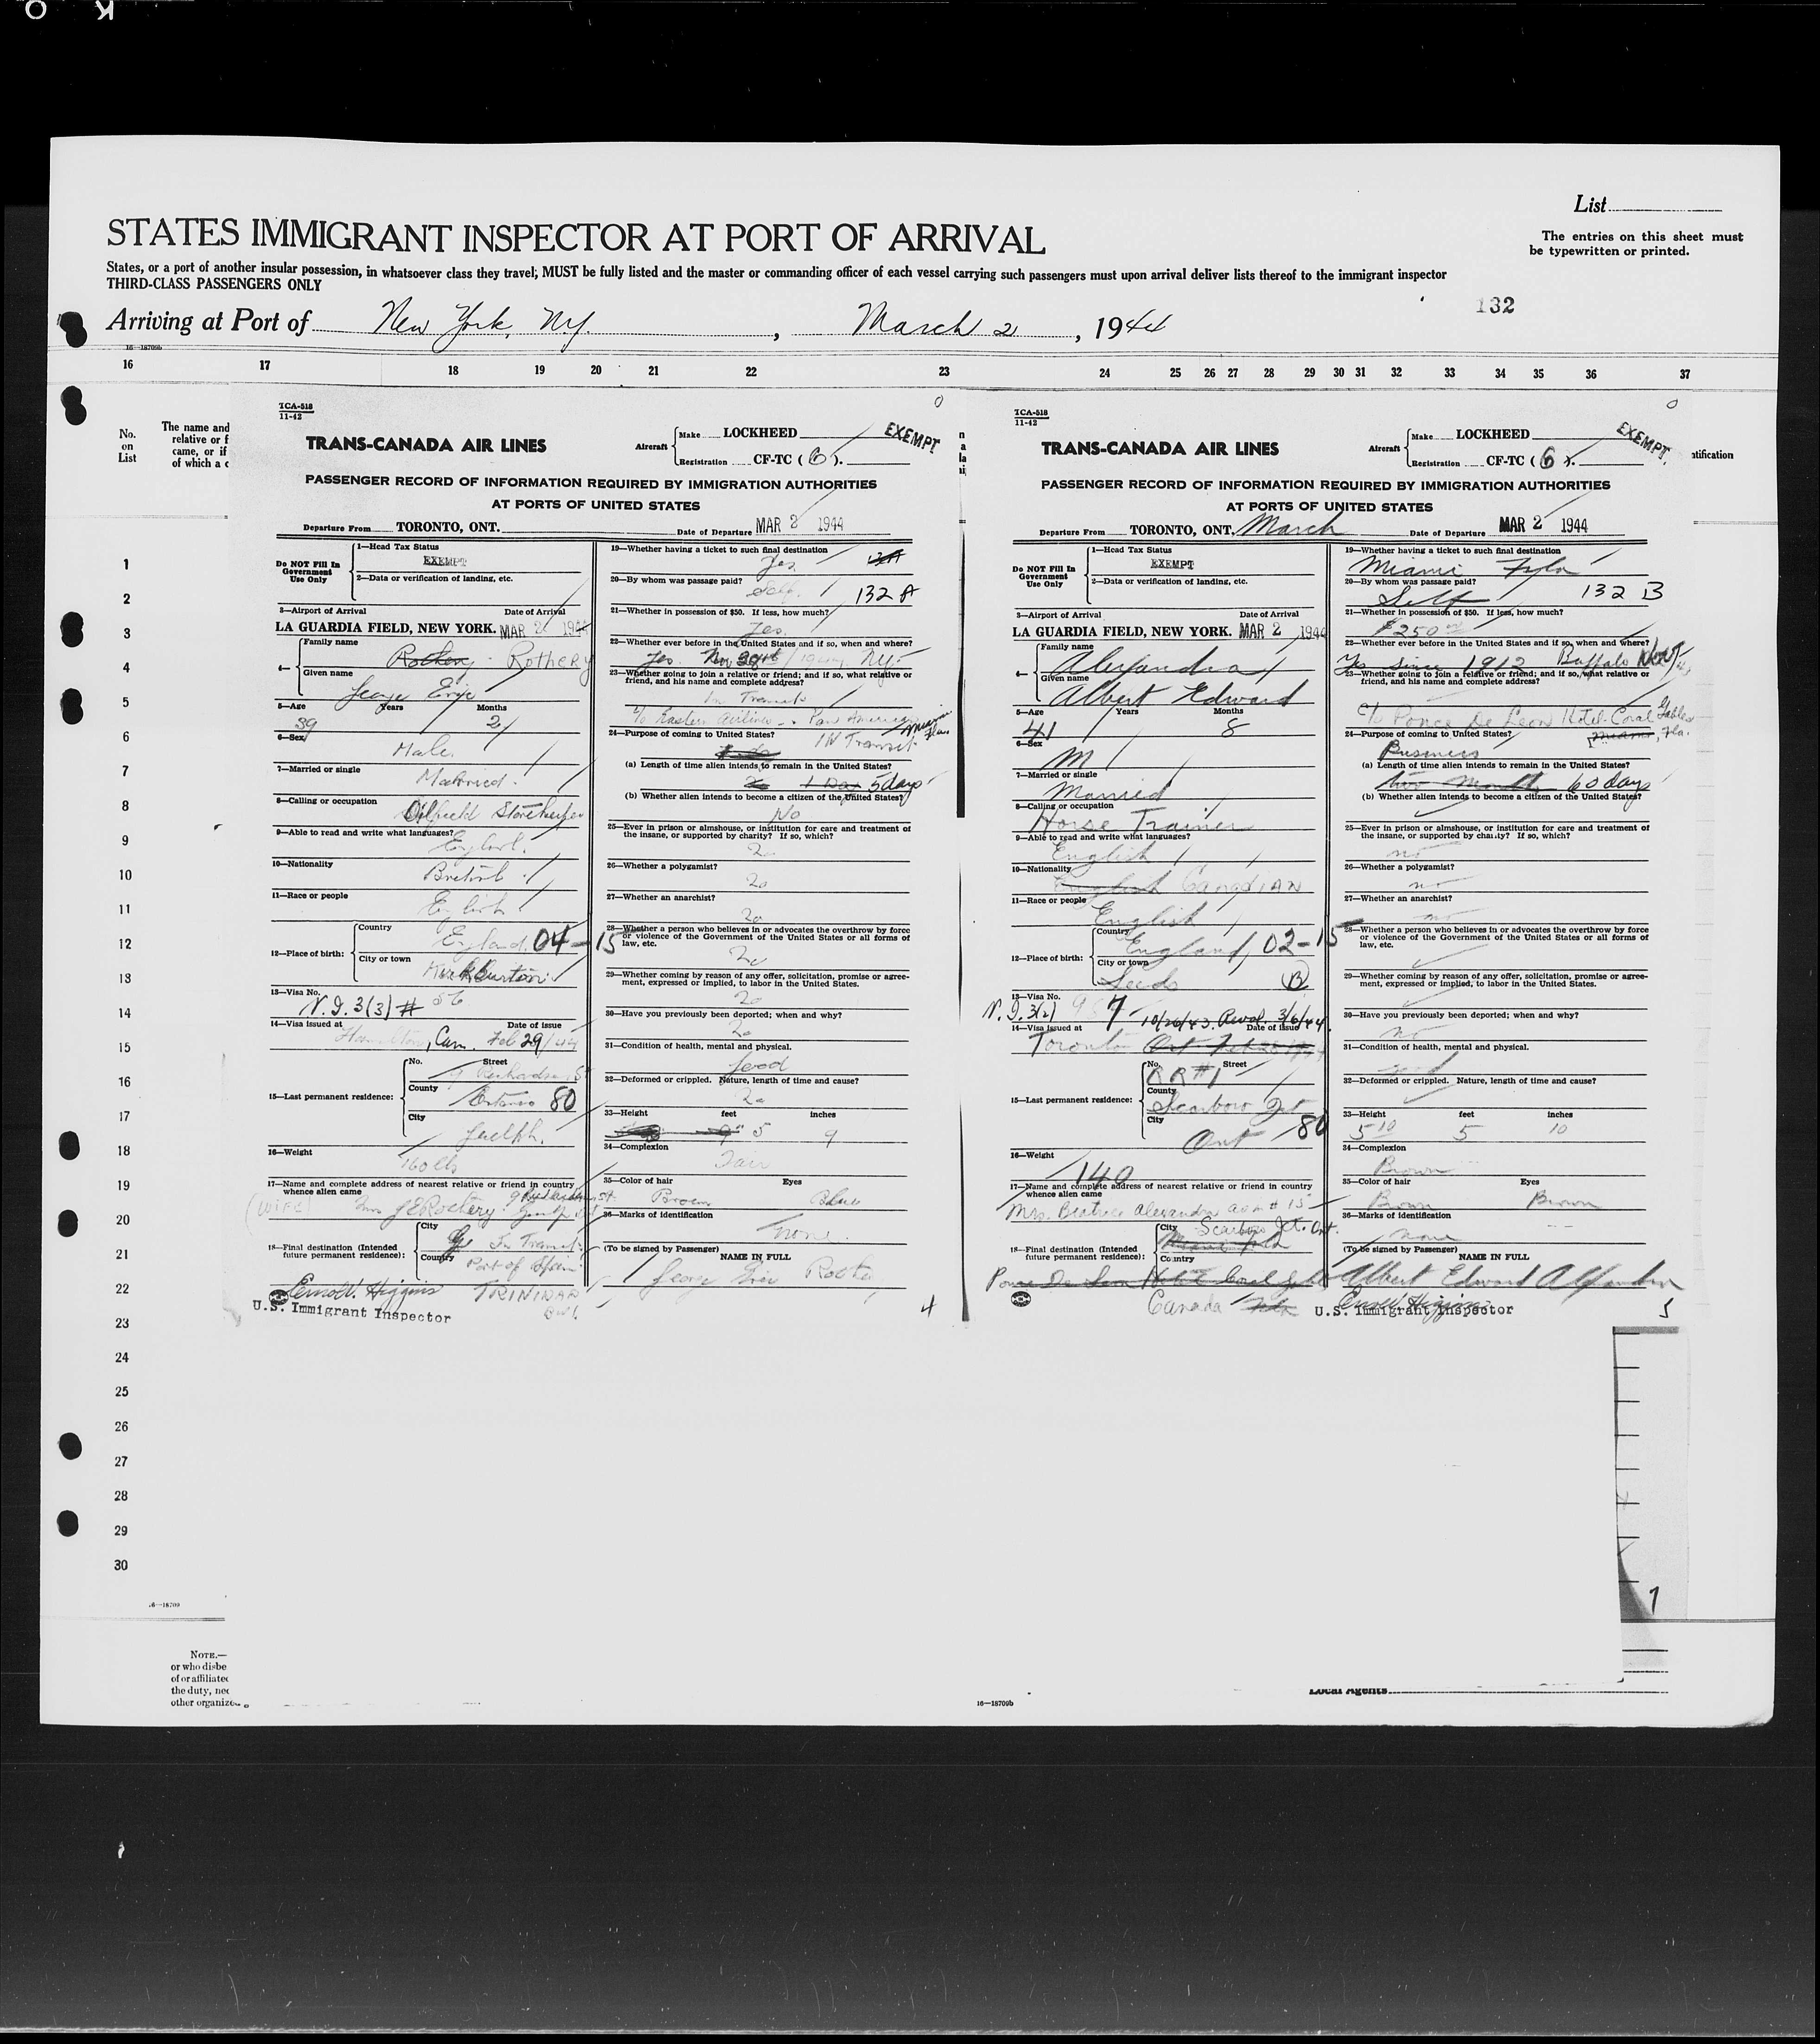 O K
List
STATES IMMIGRANT INSPECTOR AT PORT OF ARRIVAL
The entries on this sheet must
be typewritten or printed.
States, or a port of another insular possession, in whatsoever class they travel; MUST be fully listed and the master or commanding officer of each vessel carrying such passengers must upon arrival deliver lists thereof to the immigrant inspector
THIRD-CLASS PASSENGERS ONLY
132
Arriving at Port of New York, NY. , March 2 , 1944
16—18709b
16 17 18 19 20 21 22 23 24 25 26 27 28 29 30 31 32 33 34 35 36 37
No.
on
List
The name and
relative or f
came, or if
of which a c
ntification
1
2
3
4
5
6
7
8
9
10
11
12
13
14
15
16
17
18
19
20
21
22
23
24
25
26
27
28
29
30
TCA-518
11-42
TRANS-CANADA AIR LINES
Aircraft
Make LOCKHEED
Registration CF-TC ( 6 ).
EXEMPT
PASSENGER RECORD OF INFORMATION REQUIRED BY IMMIGRATION AUTHORITIES
AT PORTS OF UNITED STATES
Departure From TORONTO, ONT. Date of Departure MAR 2 1944
Do NOT Fill In
Government
Use Only
1—Head Tax Status
EXEMPT
2—Data or verification of landing, etc.
3—Airport of Arrival Date of Arrival
LA GUARDIA FIELD, NEW YORK. MAR 2 1944
4—
Family name
Rothery Rothery
Given name
George Eric
5—Age Years Months
39 2
6—Sex
Male
7—Married or single
Married
8—Calling or occupation
Oilfield Storekeeper
9—Able to read and write what languages?
10—Nationality
British
11—Race or people
English
12—Place of birth:
Country
England 04-15
City or town
Kirkburton
13—Visa No.
N.I. 3(3) # 56
14—Visa issued at Date of issue
Hamilton, Can. Feb 29/44
15—Last permanent residence:
No. Street
9 Richardson St
County
Ontario 80
City
Guelph.
16—Weight
160 lbs
17—Name and complete address of nearest relative or friend in country
whence alien came
(WIFE) Mrs G E Rothery
18—Final destination (Intended
future permanent residence):
City
In Transit
Country
Port of Spain
TRINIDAD
B.W.I.
Ernest W. Higgins
U.S. Immigrant Inspector
19—Whether having a ticket to such final destination
Yes
20—By whom was passage paid?
Self. 132 A
21—Whether in possession of $50. If less, how much?
Yes.
22—Whether ever before in the United States and if so, when and where?
Yes. Nov NY.
23—Whether going to join a relative or friend; and if so, what relative or
friend, and his name and complete address?
In Transit
c/o Eastern Airlines - Pan American Miami Fla.
24—Purpose of coming to United States?
IN Transit
(a) Length of time alien intends to remain in the United States?
1 Day 5 days
(b) Whether alien intends to become a citizen of the United States?
No
25—Ever in prison or almshouse, or institution for care and treatment of
the insane, or supported by charity? If so, which?
No
26—Whether a polygamist?
No
27—Whether an anarchist?
No
28—Whether a person who believes in or advocates the overthrow by force
or violence of the Government of the United States or all forms of
law, etc.
No
29—Whether coming by reason of any offer, solicitation, promise or agree-
ment, expressed or implied, to labor in the United States.
No
30—Have you previously been deported; when and why?
No
31—Condition of health, mental and physical.
Good
32—Deformed or crippled. Nature, length of time and cause?
No
33—Height feet inches
5 9
34—Complexion
Fair
35—Color of hair Eyes
Brown Blue
36—Marks of identification
None.
(To be signed by Passenger) NAME IN FULL
George Eric Rothery
4
TCA-518
11-42
TRANS-CANADA AIR LINES
Aircraft
Make LOCKHEED
Registration CF-TC ( 6 ).
EXEMPT.
PASSENGER RECORD OF INFORMATION REQUIRED BY IMMIGRATION AUTHORITIES
AT PORTS OF UNITED STATES
Departure From TORONTO, ONT. March Date of Departure MAR 2 1944
Do NOT Fill In
Government
Use Only
1—Head Tax Status
EXEMPT
2—Data or verification of landing, etc.
3—Airport of Arrival Date of Arrival
LA GUARDIA FIELD, NEW YORK. MAR 2 1944
4—
Family name
Alexandra
Given name
Albert Edward
5—Age Years Months
41 8
6—Sex
M
7—Married or single
Married
8—Calling or occupation
Horse Trainer
9—Able to read and write what languages?
English
10—Nationality
English Canadian
11—Race or people
English
12—Place of birth:
Country
England, 02-15
City or town
Leeds B
13—Visa No.
N.I. 3(2) 967 10/26/43. Reval. 3/6/44.
14—Visa issued at Date of issue
Toronto Ont
15—Last permanent residence:
No. Street
RR #1
County
Scarboro Jct
City
Ont 80
16—Weight
140
17—Name and complete address of nearest relative or friend in country
whence alien came
Mrs. Beatrice Alexandra
Scarboro Jct. Ont.
18—Final destination (Intended
future permanent residence):
City
Miami Fla
Country
Ponce De Leon Hotel Coral Gables
Canada Fla
19—Whether having a ticket to such final destination
Miami Fyla
20—By whom was passage paid?
Self 132 B
21—Whether in possession of $50. If less, how much?
$250
22—Whether ever before in the United States and if so, when and where?
Yes since 1912 Buffalo Nov/43
23—Whether going to join a relative or friend; and if so, what relative or
friend, and his name and complete address?
c/o Ponce De Leon Hotel-Coral Gables
Miami, Fla.
24—Purpose of coming to United States?
Business
(a) Length of time alien intends to remain in the United States?
two Months 60 days
(b) Whether alien intends to become a citizen of the United States?
25—Ever in prison or almshouse, or institution for care and treatment of
the insane, or supported by charity? If so, which?
no
26—Whether a polygamist?
no
27—Whether an anarchist?
no
28—Whether a person who believes in or advocates the overthrow by force
or violence of the Government of the United States or all forms of
law, etc.
29—Whether coming by reason of any offer, solicitation, promise or agree-
ment, expressed or implied, to labor in the United States.
30—Have you previously been deported; when and why?
no
31—Condition of health, mental and physical.
good
32—Deformed or crippled. Nature, length of time and cause?
33—Height feet inches
5 10 5 10
34—Complexion
Brown
35—Color of hair Eyes
Brown Brown
36—Marks of identification
none
(To be signed by Passenger) NAME IN FULL
Albert Edward Alexandra
U.S. Immigrant Inspector
5
7
16—18709
NOTE.—
or who disbe
of or affiliated
the duty, nec
other organiza
16—18709b
Local Agents